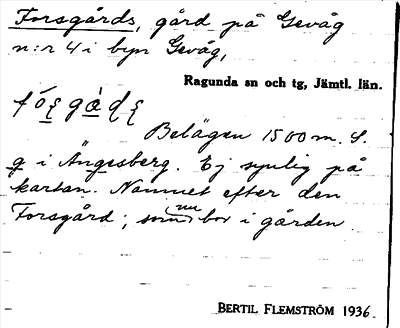 Forsgårds, gård på Gevåg
n:r 4 i byn Gevåg,
Ragunda sn och tg, Jämtl. län.
Belägen 1500 m. S.
g i Ängesberg. Ej synlig på
kartan. Namnet efter den
Forsgård; som nu bor i gården.
BERTIL FLEMSTRÖM 1936